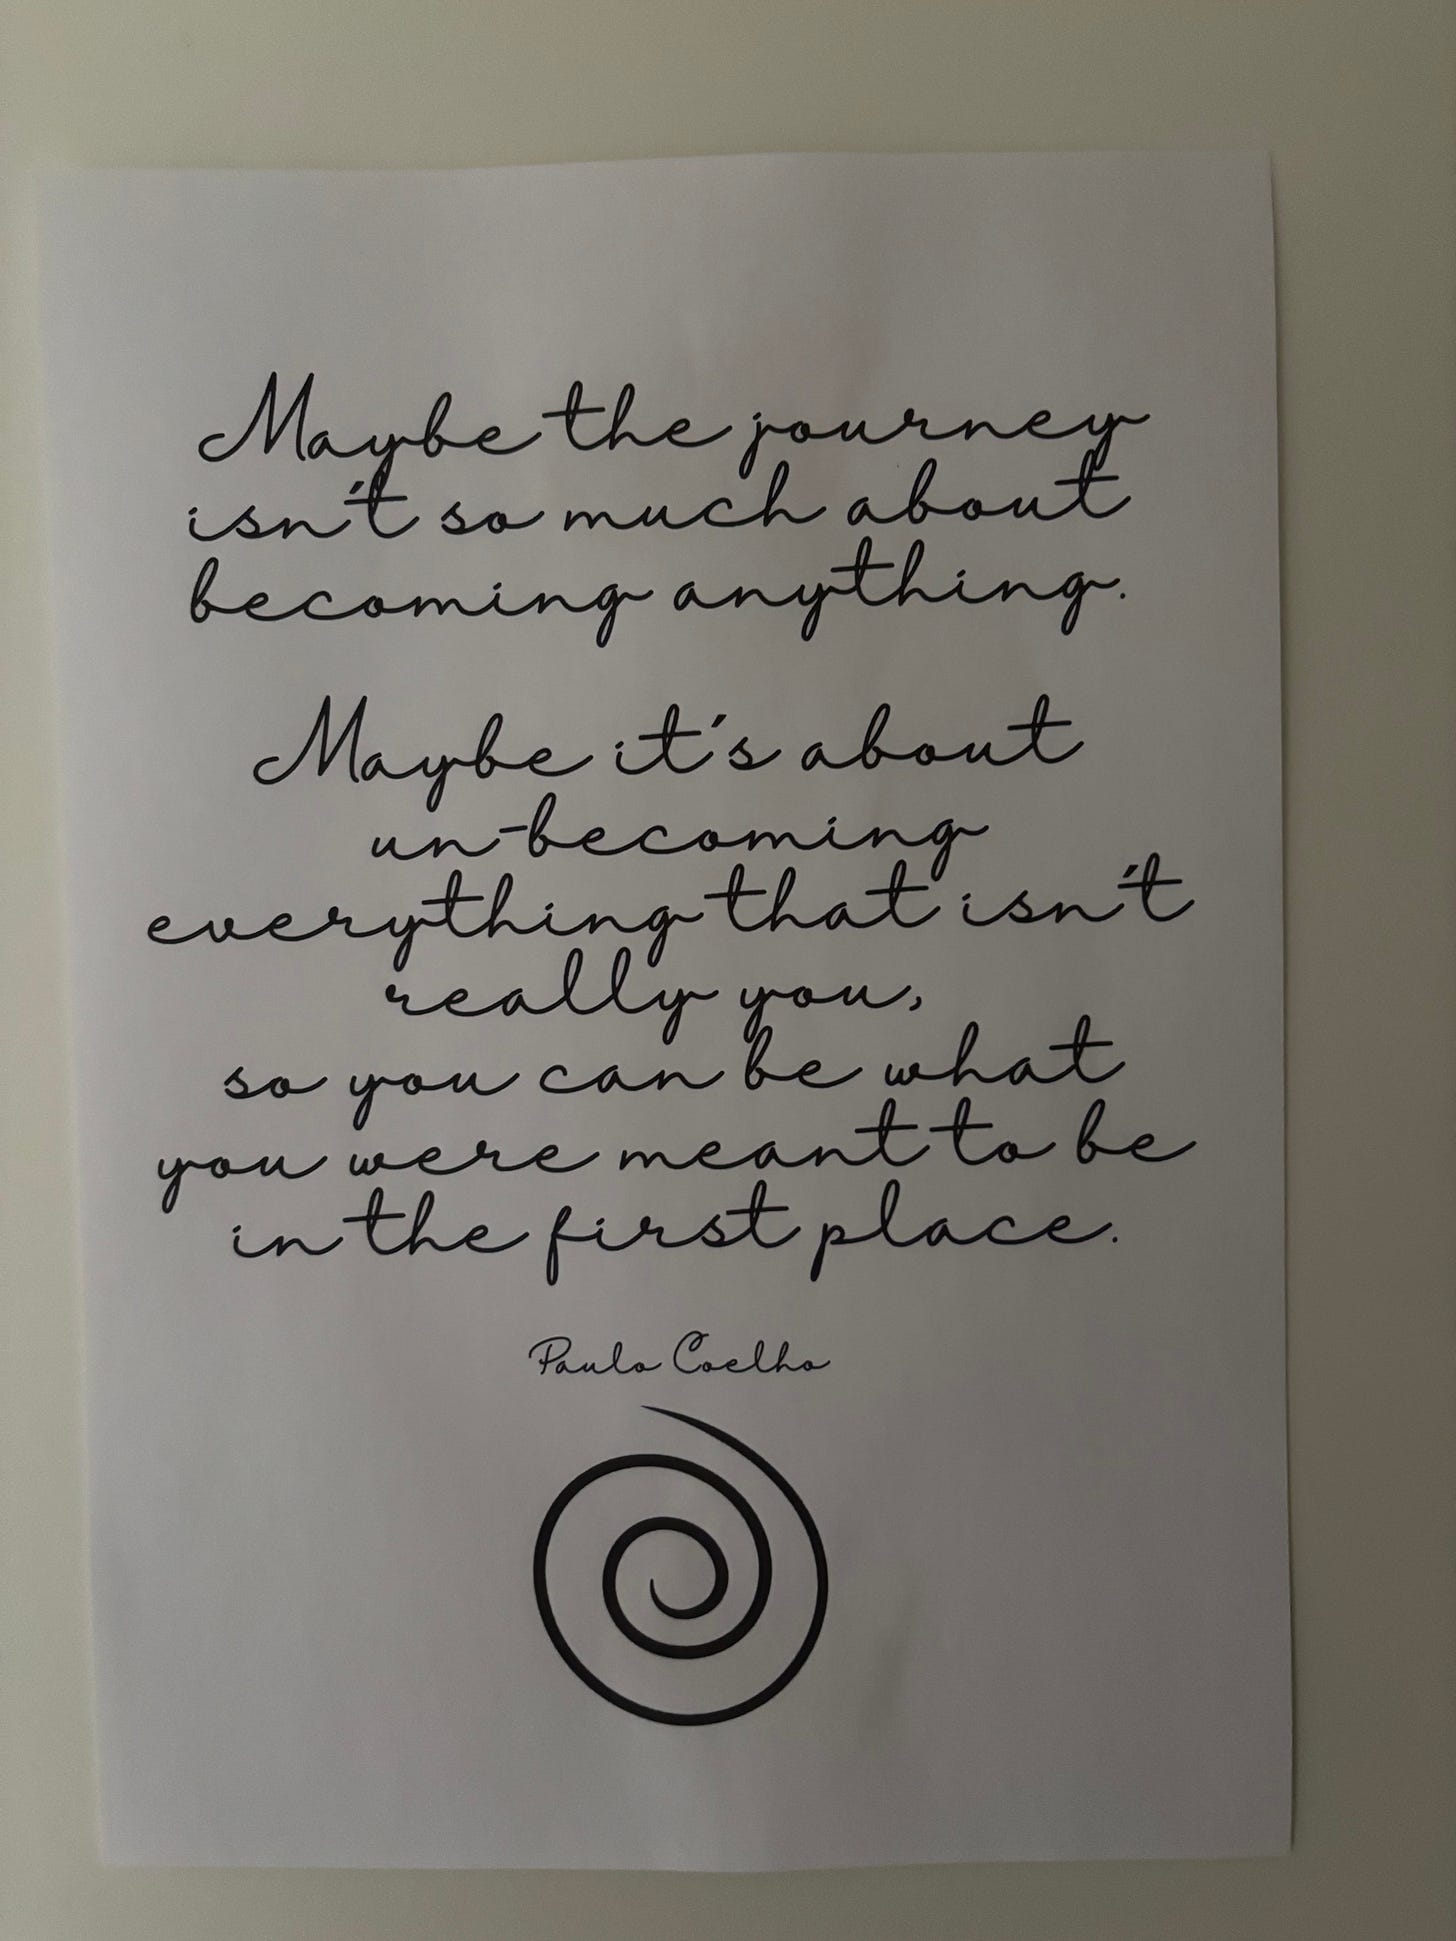 Maybe the journey
isn't so much about
becoming anything.
Maybe it's about
un-becoming
everything that isn't
really you,
so you can be what
you were meant to be
in the first place.
Paulo Coelho